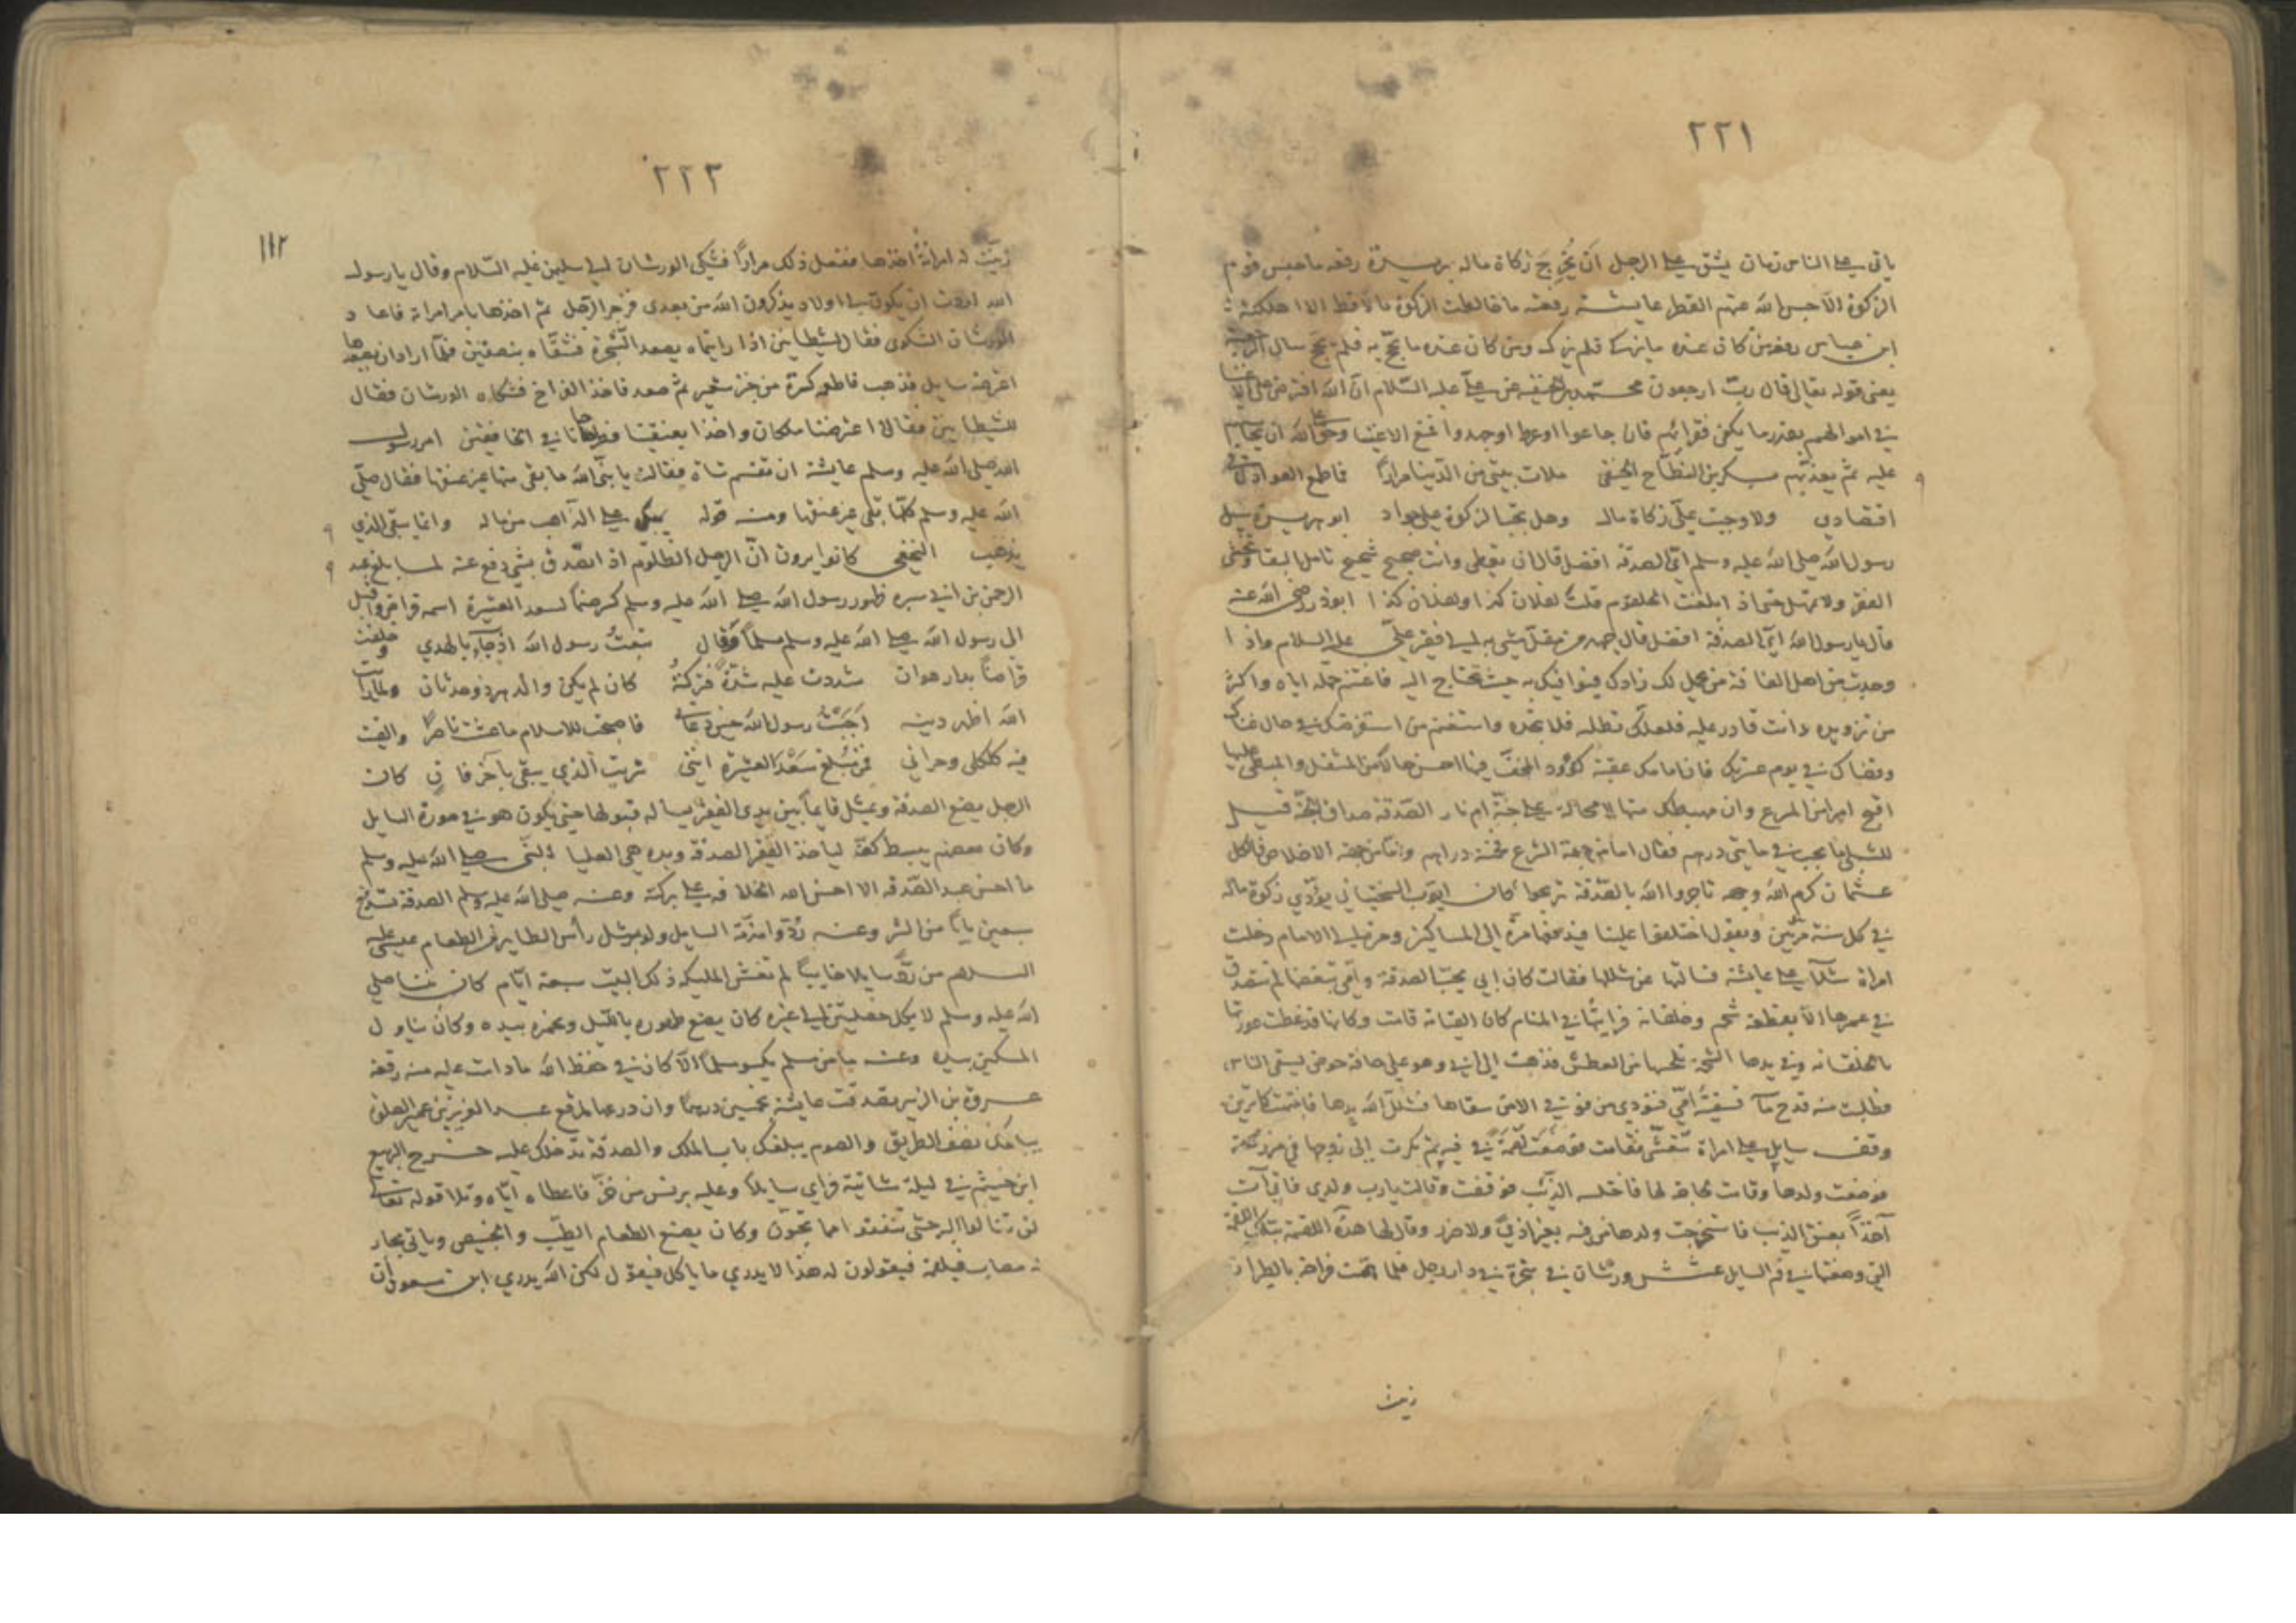 ٢٢١
ياتي على الناس زمان يشق على الرجل ان يُخرِجَ زكاة ماله بريدة رفعه ما حبس قوم
الزكوة الا حبس الله عنهم القطر عايشة رفعته ما خالطت الزكوة مالا قط الا اهلكته
ابن عباس رفعه من كان عنده ما يزكى فلم يزك ومن كان عنده ما يحج به فلم يحج سال الرجعة
يعني قوله تعالى قال رب ارجعون محمد بن الحنفية عن علي عليه السلام ان الله افترض على الاغنيا
في اموالهم بقدر ما يكفي فقرائهم فان جاعوا او عروا او جهدوا فبمنع الاغنيا وحق على الله ان يحاسبهم
عليه ثم يعذبهم بكر بن النطاح الحنفي ملات يدي من الدنيا مرارًا فما طمع العواذل في
اقتصادي ولا وجبت عليّ زكاة مال وهل تجب الزكوة على جواد ابو هريرة سيل
رسول الله صلى الله عليه وسلم اي الصدقة افضل قال ان تعطي وانت صحيح شحيح تامل البقا وتخشى
الفقر ولا تمهل حتى اذا بلغت الحلقوم قلت لفلان كذا ولفلان كذا ابو ذر رضي الله عنه
قال يا رسول الله اي الصدقة افضل قال جهد من مقل يشي به الى فقير عليّ عليه السلام واذا
وجدت من اهل الفاقة من يحمل لك زادك فيوافيك به حيث تحتاج اليه فاغتنم حمله اياه واكثر
من تزويده وانت قادر عليه فلعلك تطلبه فلا تجده واستغنم من استقرضك في حال غناك
وقضاك في يوم عسرتك فان امامك عقبة كؤود المخف فيها احسن حالا من المثقل والمبطي عليها
اقبح امرا من المسرع وان مهبطك منها لا محالة على جنة ام نار الصدقة صداق الجنة قيل
للشبلي ما يجب في مايتي درهم فقال اما من جهة الشرع فخمسة دراهم واما من جهة الاخلاص فالكل
عثمان كرم الله وجهه تاجروا الله بالصدقة تربحوا كان ايوب السختياني يؤدي زكوة ماله
في كل سنة مرتين ويقول اختلفوا علينا فيدفعها مرة الى المساكين ومرة الى الامام دخلت
امراة شلاّ على عائشة فسالتها عن شللها فقالت كان ابي يحب الصدقة وامي تبغضها لم تتصدق
في عمرها الا بقطعة شحم وخلقانه فرايتها في المنام كان القيامة قامت وكانها قد غطت عورتها
بالخلقانه وفي يدها الشحمة تلحسها من العطش فذهبت الى ابي وهو على حافة حوض يسقي الناس
فطلبت منه قدح ماء فسقيت امي فنودي من فوق الا من سقاها فشلّ الله يدها فانتبهت كما ترين
وقف سايل على امراة تتعشى فقامت فوضعت لقمة في فيه ثم بكرت الى زوجها في مزرعته
فوضعت ولدها وقامت لحاجة لها فاختلسه الذئب فوقفت وقالت يا رب ولدي فاتى آت
آخذًا بعنق الذيب فاستخرجت ولدها من فيه بغير اذى ولا ضرر وقال لها هذه اللقمة بتلك اللقمة
التي وضعتها في فم السايل عشش ورشان في شجرة في دار رجل فلما همت فراخه بالطيران
زينت
٢٢٢
١١٢
زينت له امراته اخذها ففعل ذلك مرارًا فشكى الورشان الى سليمن عليه السلام وقال يا رسول
الله اردت ان يكون لي اولاد يذكرون الله من بعدي فزجر الرجل ثم اخذها بامر امراته فاعاد
الورشان الشكوى فقال لشيطانين اذا رايتماه يصعد الشجرة فشقاه بنصفين فلما اراد ان يصعدها
اعترضه سايل فذهب فاطعمه كسرة من خبز شعير ثم صعد فاخذ الفراخ فشكاه الورشان فقال
للشيطانين فقالا اعترضنا ملكان واخذا بعنقنا فطرحانا في الخافقين امر رسول
الله صلى الله عليه وسلم عايشة ان تقسم شاة فقالت يا نبي الله ما بقي منها غير عنقها فقال صلى
الله عليه وسلم كلها بقي غير عنقها ومنه قوله يبكي على الذاهب من ماله وانما يبقى الذي
يذهب النخعي كانوا يرون ان الرجل المظلوم اذا تصدق بشي دفع عنه لما بلغ عبد
الرحمن بن ابي سبره ظهور رسول الله صلى الله عليه وسلم كسر صنمًا لسعد العشيرة اسمه قراض واقبل
الى رسول الله صلى الله عليه وسلم مسلمًا وقال تبعتُ رسول الله اذ جاء بالهدي وخلفت
قراضًا بدار هوان شددت عليه شدّة فتركته كان لم يكن والدهر ذو حدثان ولما رايت
الله اظهر دينه اجبتُ رسول الله حين دعاني فاصبحت للاسلام ما عشت ناصرًا والقيت
فيه كلكلي وجراني فمن مبلغ سعد العشيرة انني شريت الذي يبقى بآخر فان كان
الرجل يضع الصدقة ويمثل قايمًا بين يدي الفقير يساله قبولها حتى يكون هو في صورة السايل
وكان بعضهم يبسط كفه لياخذ الفقير الصدقة ويده هي العليا النبي صلى الله عليه وسلم
ما احسن عبد الصدقة الا احسن الله الخلافه على بركته وعنه صلى الله عليه وسلم الصدقة تسد
سبعين بابًا من الشر وعنه ردّوا مذمة السايل ولو بمثل رأس الطاير من الطعام عيسى عليه
السلام من ردّ سايلا خايبًا لم تغش المليكة ذلك البيت سبعة ايام كان نبينا صلى
الله عليه وسلم لا يكل خصلتين الى غيره كان يضع طهوره بالليل ويخمره بيده وكان يناول
المسكين بيده وعنه ما من مسلم يكسو مسلمًا الا كان في حفظ الله ما دامت عليه منه رقعة
عروة بن الزبير تصدقت عايشة بخمسين درهمًا وان درعها لمرقع عبد العزيز بن عمير الصلوة
يبلغك نصف الطريق والصوم يبلغك باب الملك والصدقة تدخلك عليه خرج الربيع
ابن خيثم في ليلة شاتية فراى سايلًا وعليه برنس من خز فاعطاه اياه وتلا قوله تعالى
لن تنالوا البر حتى تنفقوا مما تحبون وكان يصنع الطعام الطيب والخبيص وياتي بجار
له مصاب فيلقمه فيقولون له هذا لا يدري ما ياكل فيقول لكن الله يدري ابن مسعود ان